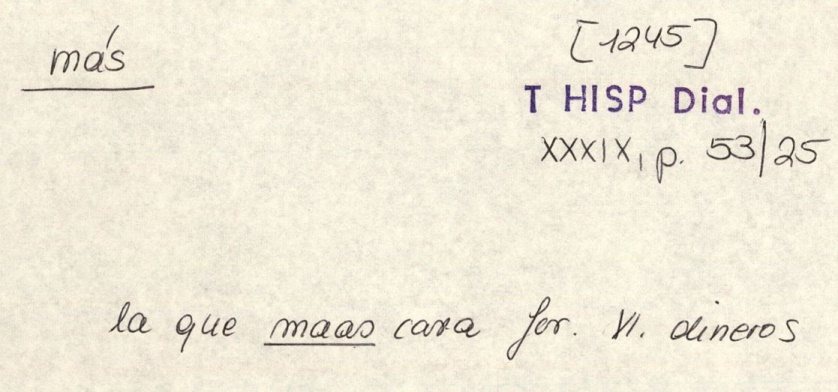 más
[1245]
T HISP Dial.
XXXIX, p. 53/25
la que maas cara for. VI. dineros